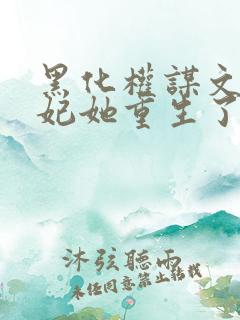 黑化權謀文
妃她重生了
沐弦聽雨
未任同意禁止轉載